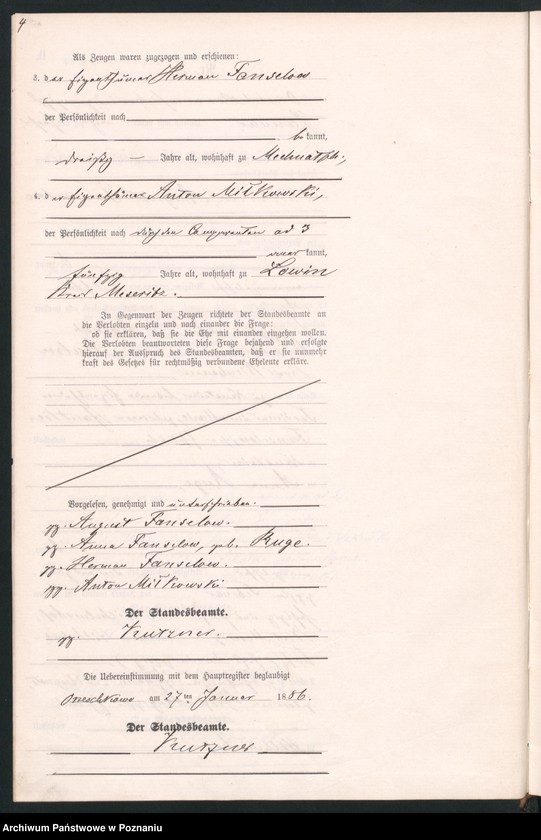 4
Als Zeugen waren zugezogen und erschienen:
3. der Eigenthümer Herman Fanselow
der Persönlichkeit nach
bekannt,
dreißig — Jahre alt, wohnhaft zu
4. der Eigenthümer Anton Miłkowski,
der Persönlichkeit nach durch den Comparenten ad 3
kannt,
fünfzig Jahre alt, wohnhaft zu Lowin
Kreis Meseritz.
In Gegenwart der Zeugen richtete der Standesbeamte an
die Verlobten einzeln und nach einander die Frage:
ob sie erklären, daß sie die Ehe mit einander eingehen wollen.
Die Verlobten beantworteten diese Frage bejahend und erfolgte
hierauf der Ausspruch des Standesbeamten, daß er sie nunmehr
kraft des Gesetzes für rechtmäßig verbundene Eheleute erkläre.
Vorgelesen, genehmigt und unterschrieben.
gz. August Fanselow.
gz. Anna Fanselow, geb. Ruge.
gz. Herman Fanselow.
gz. Anton Miłkowski
Der Standesbeamte.
gz. Kutzner.
Die Uebereinstimmung mit dem Hauptregister beglaubigt
am 27ten Januar 1886.
Der Standesbeamte.
Kutzner
Archiwum Państwowe w Poznaniu